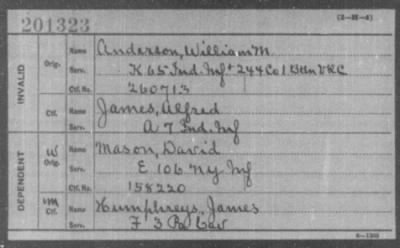 201323
(3-H-4)
INVALID
Orig.
Name Anderson, William M.
Serv. K 65 Ind. Inf + 244 Co 1 Btln VRC
Ctf. No. 260713
Ctf.
Name James, Alfred
Serv. A 7 Ind. Inf
DEPENDENT
W
Orig.
Name Mason, David
Serv. E 106 NY Inf
Ctf. No. 158220
Ctf.
Name Humphreys, James
F 3 Pa Cav